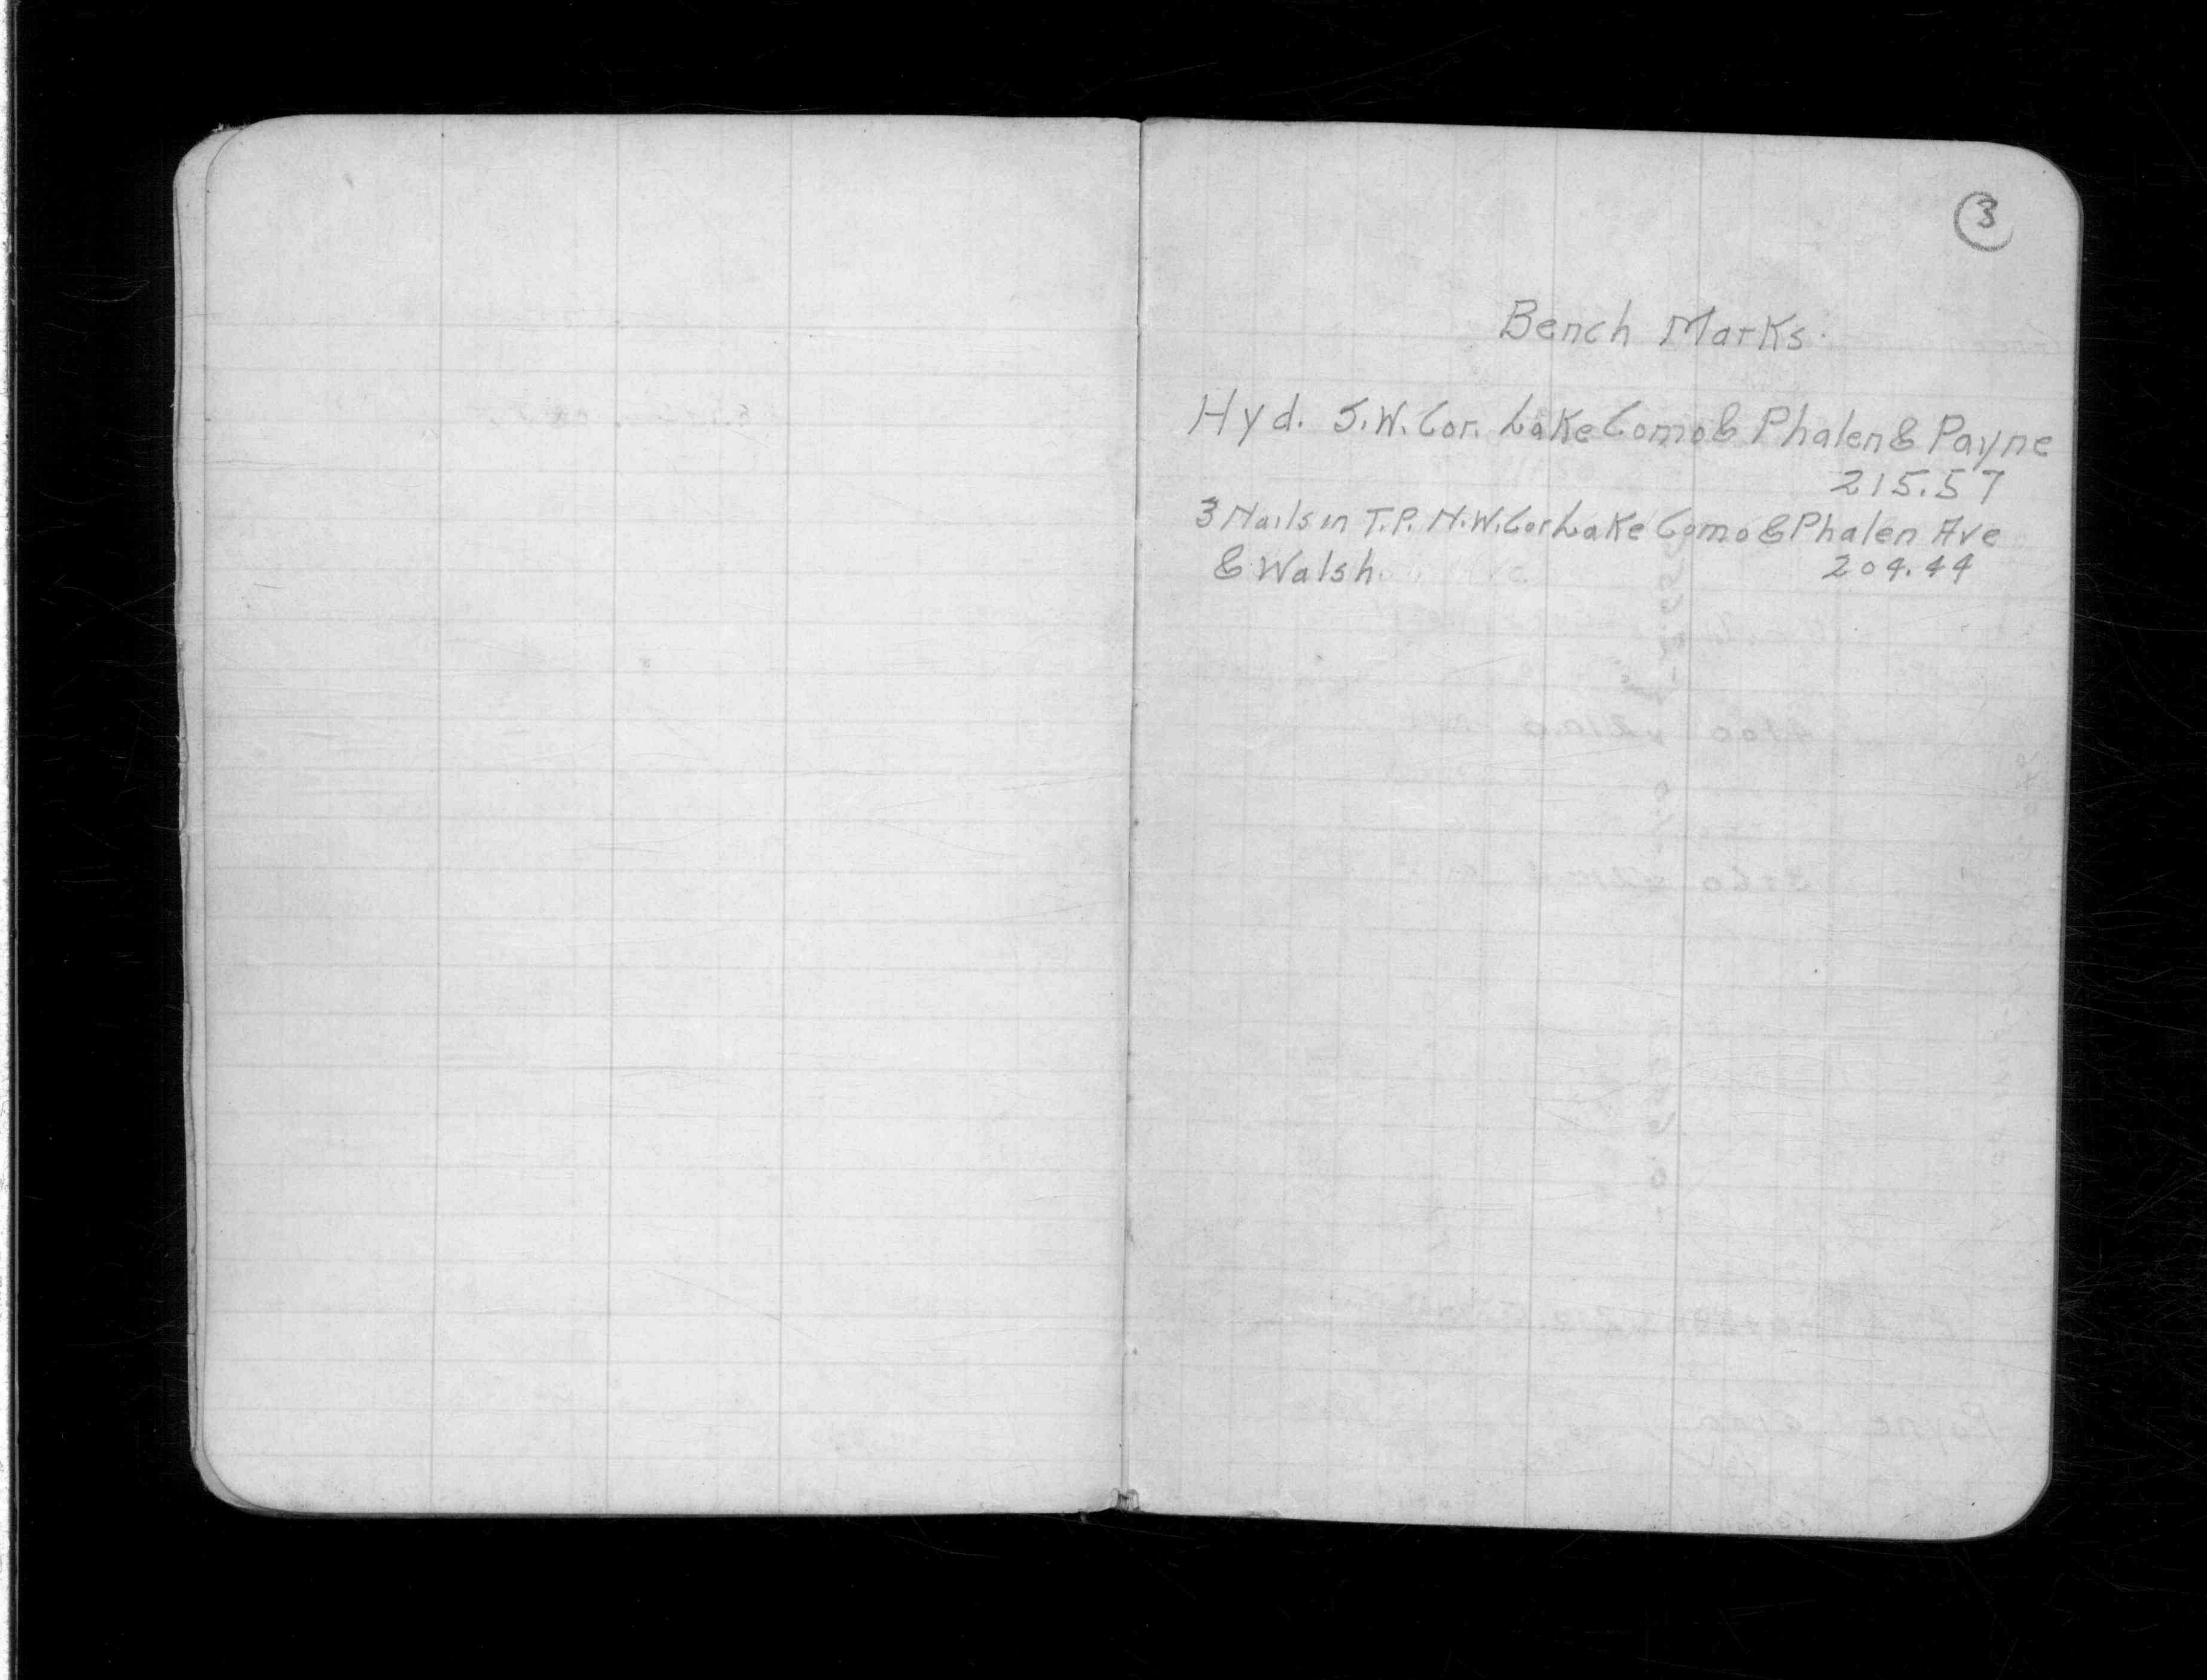 3
Bench Marks.
Hyd. S.W. Cor. Lake Como & Phalen & Payne
215.57
3 Nails in T.P. N.W. Cor Lake Como & Phalen Ave
& Walsh. 204.44